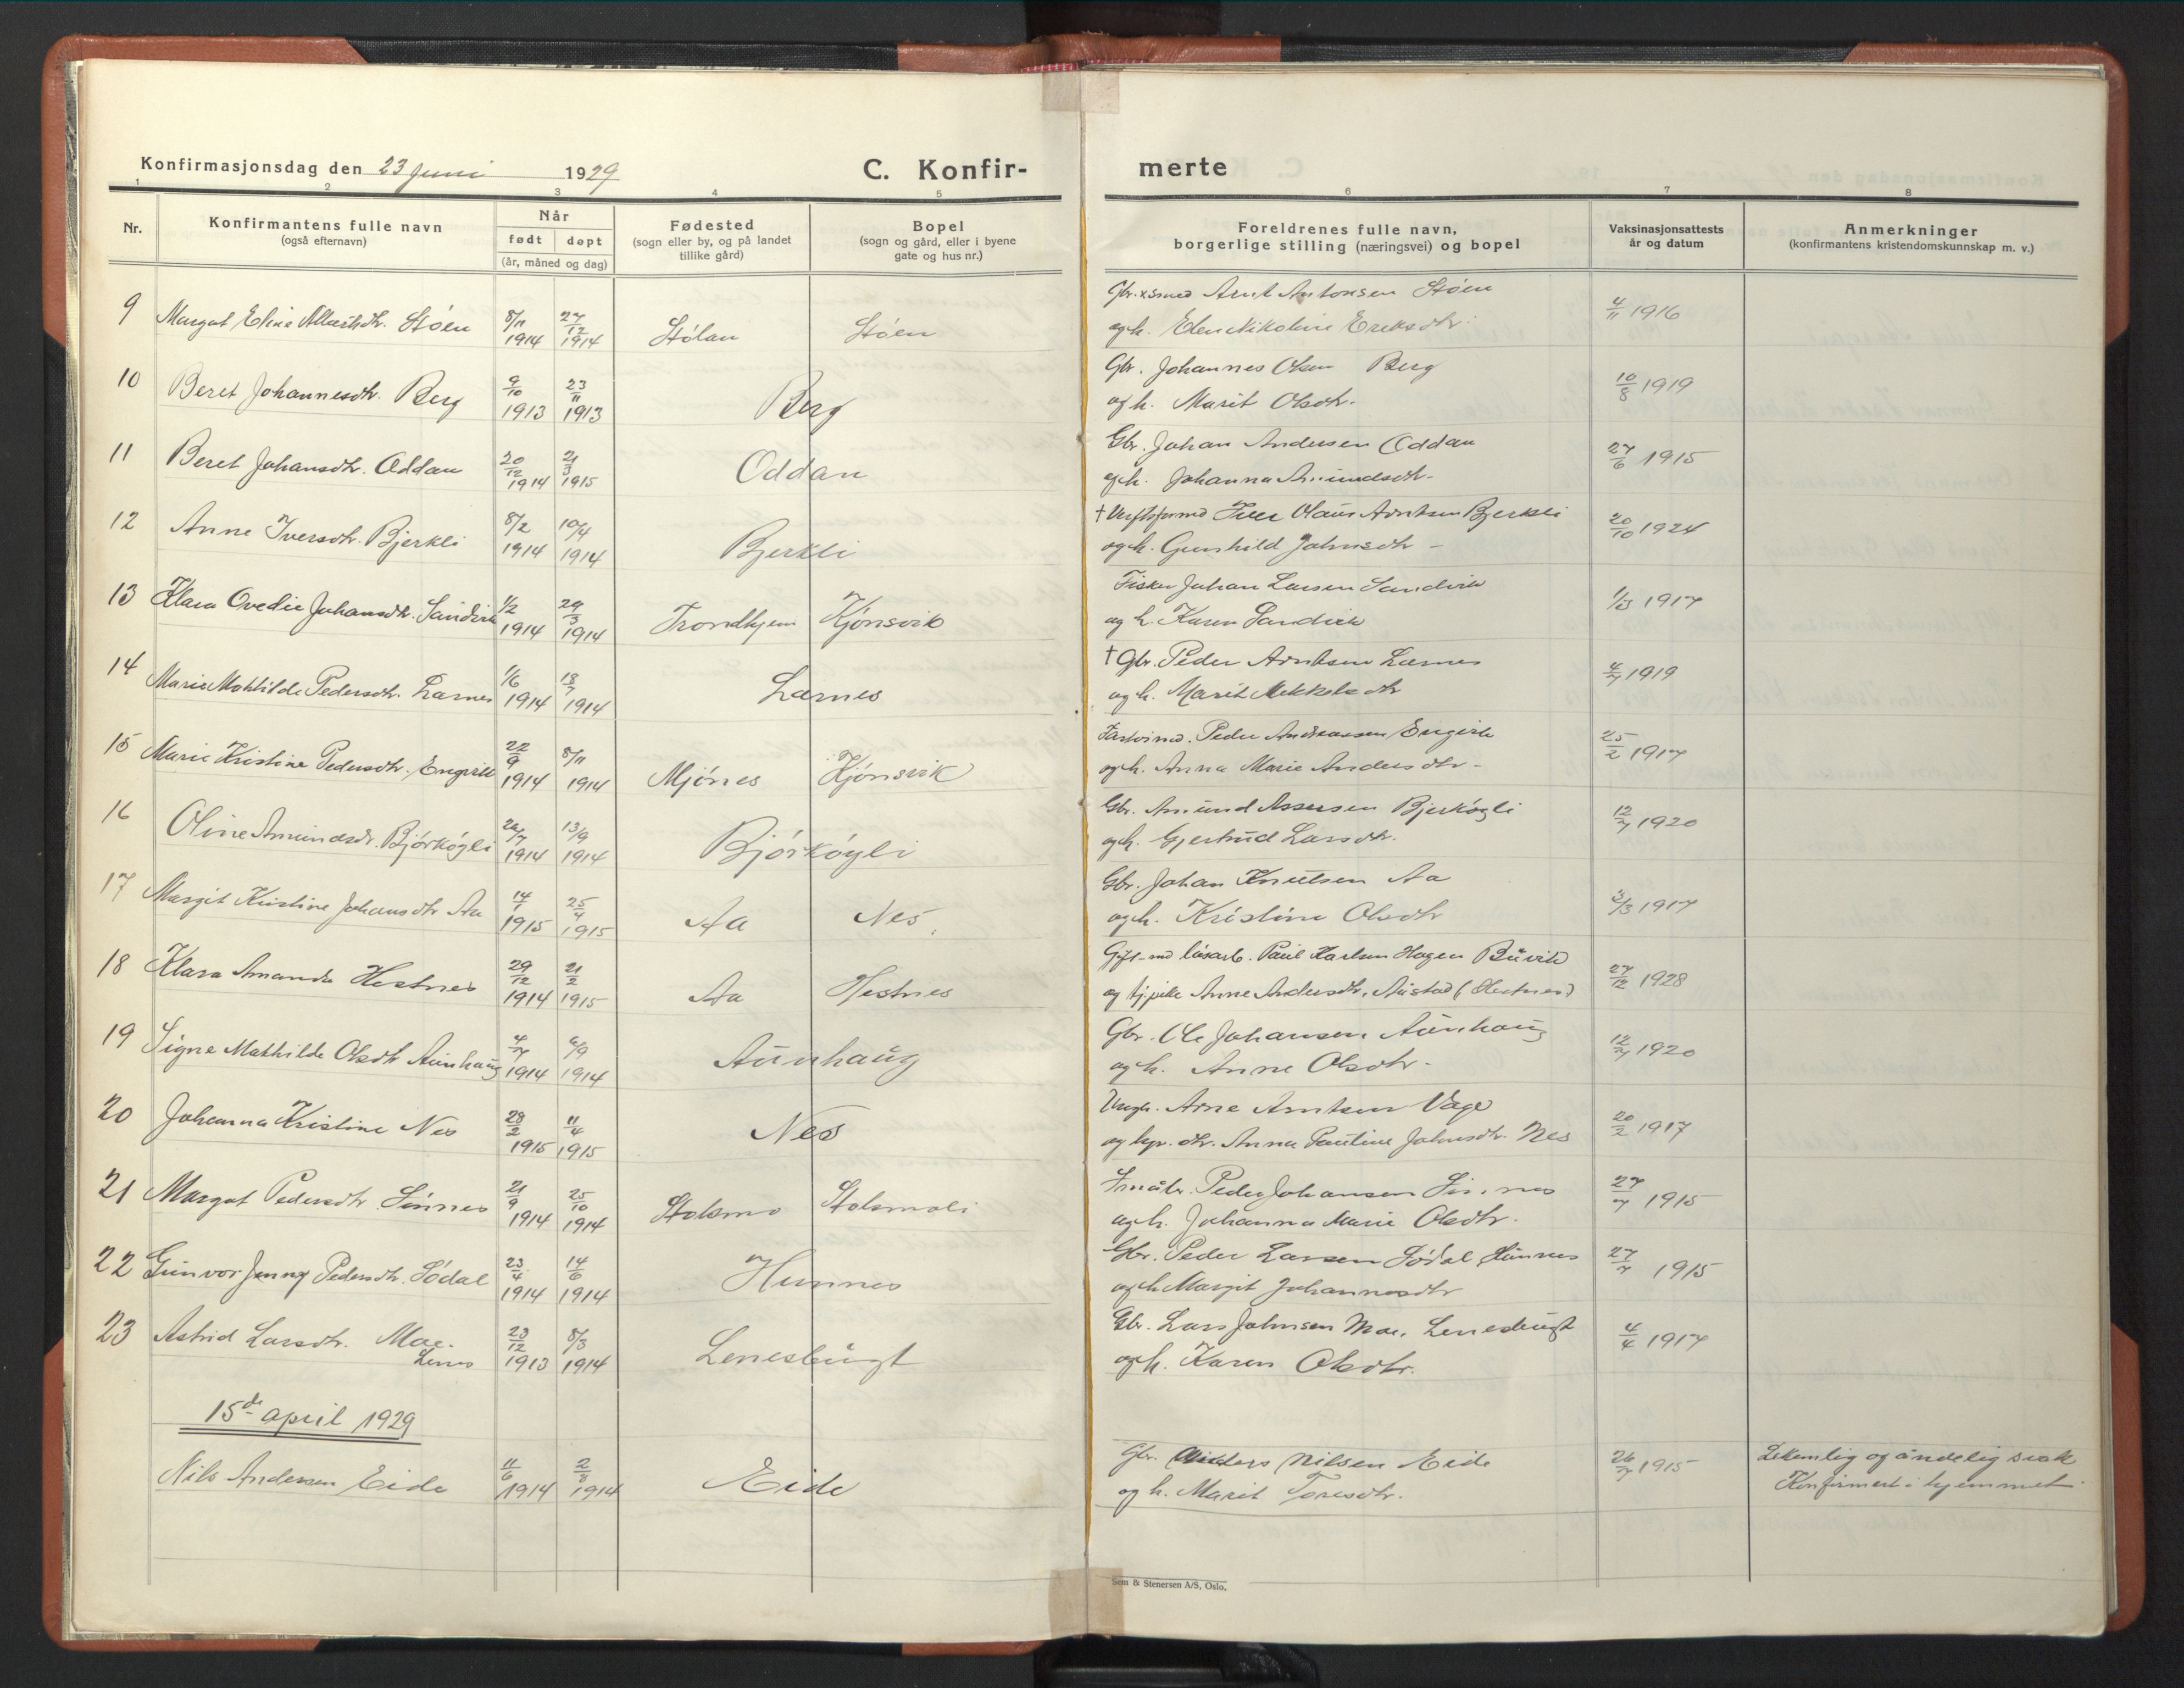 Konfirmasjonsdag den 23 juni 1929
C. Konfir-
merte
1 2 3 4 5 6 7 8
Nr.
Konfirmantens fulle navn
(også efternavn)
Når
født døpt
(år, måned og dag)
Fødested
(sogn eller by, og på landet
tillike gård)
Bopel
(sogn og gård, eller i byene
gate og hus nr.)
Foreldrenes fulle navn,
borgerlige stilling (næringsvei) og bopel
Vaksinasjonsattests
år og datum
Anmerkninger
(konfirmantens kristendomskunnskap m. v.)
9 Margot Eline Støen 8/11 1914 27/12 1914 Stølan Støen
Arnt Antonsen Støen 4/11 1916
og h. Elen Nikoline Eriksdtr.
10 Beret Johannesdtr. Berg 9/10 1913 23/11 1913 Berg
Gbr. Johannes Olsen Berg 10/8 1919
og h. Marit Olsdtr.
11 Beret Johansdtr. Oddan 20/12 1914 21/3 1915 Oddan
Gbr. Johan Andersen Oddan 27/6 1915
og h. Johanna Amundsdtr.
12 Anne Iversdtr. Bjerkli 8/2 1914 10/4 1914 Bjerkli
† Iver Olaus Arntsen Bjerkli 20/10 1924
og h. Gunhild Johnsdtr -
13 Klara Ovedie Johansdtr. Sandvik 1/2 1914 29/3 1914 Trondhjem Kjønsvik
Fisker Johan Larsen Sandvik 1/3 1917
og h. Karen Sandvik
14 Marie Mathilde Pedersdtr. Larnes 1/6 1914 13/7 1914 Larnes
† Gbr. Peder Arntsen Larnes 4/7 1919
og h. Marit Mekkelsdtr
15 Marie Kristine Pedersdtr. Engvik 22/9 1914 8/11 1914 Mjønes Kjønsvik
Peder Andreassen Engvik 25/2 1917
og h. Anna Marie Andersdtr -
16 Oline Amundsdr. Bjørkøyli 26/7 1914 13/9 1914 Bjørkøyli
Gbr. Amund Assersen Bjerkøyli 12/7 1920
og h. Gjertrud Larsdtr.
17 Margit Kristine Johansdtr Aa 14/1 1915 25/4 1915 Aa Nes
Gbr. Johan Knutsen Aa 3/3 1917
og h. Kristine Olsdtr
18 Klara Amanda Hestnes 29/12 1914 21/2 1915 Aa Hestnes
Gift md løsarb. Paul Karlsen Hagen Buvik 27/12 1928
og tj.pike Anne Andersdtr. Austad (Hestnes)
19 Signe Mathilde Olsdtr Aunhaug 4/7 1914 6/9 1914 Aunhaug
Gbr. Ole Johansen Aunhaug 12/7 1920
og h. Anne Olsdtr -
20 Johanna Kristine Nes 28/2 1915 11/4 1915 Nes
Ungk. Arne Arntsen Vage 20/2 1917
og Anna Pauline Johnsdtr. Nes
21 Margot Pedersdtr Sinnes 21/9 1914 25/10 1914 Stolsmo Stolsmoli
Småbr. Peder Johansen Sinnes 27/7 1915
og h. Johanna Marie Olsdtr.
22 Gunvor Jenny Pedersdtr. Sødal 23/4 1914 14/6 1914 Hunnes
Gbr. Peder Larsen Sødal Hunnes 27/7 1915
og h. Margit Johannesdtr
23 Astrid Larsdtr. Moe. 23/12 1913 8/3 1914 Lenesbugt
Lenes
Gbr. Lars Johnsen Moe, Lenesbugt 4/4 1917
og h. Karen Olsdtr.
15de april 1929
Nils Andersen Eide 11/6 1914 2/8 1914 Eide
Gbr. Anders Nilsen Eide 26/7 1915
og h. Marit Toresdtr.
Lekemlig og åndelig svak
Konfirmert i hjemmet
Sem & Stenersen A/S, Oslo.